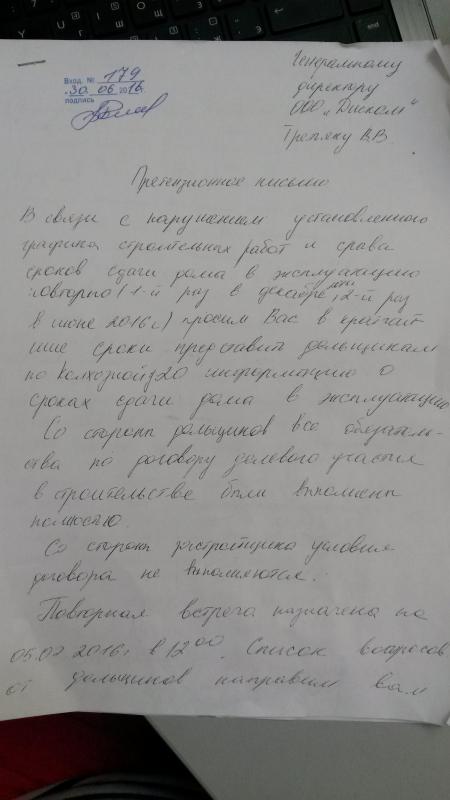 Вход. № 179
30 06 2016г.
подпись
Генеральному
директору
ООО „Диском"
Трепяку В.В.
Претензионное письмо
В связи с нарушением установленного
графика строительных работ и срыва
сроков сдачи дома в эксплуатацию
повторно (1-й раз в декабре, 2-й раз
в июне 2016г) просим Вас в кратчай
шие сроки представить дольщикам
по Колхозной 20 информацию о
сроках сдачи дома в эксплуатацию
Со стороны дольщиков все обязатель-
ства по договору долевого участия
в строительстве были выполнены
полностью.
Со стороны застройщика условия
договора не выполняются.
Повторная встреча назначена на
05.07 2016г в 12 00. Список вопросов
от дольщиков направим Вам